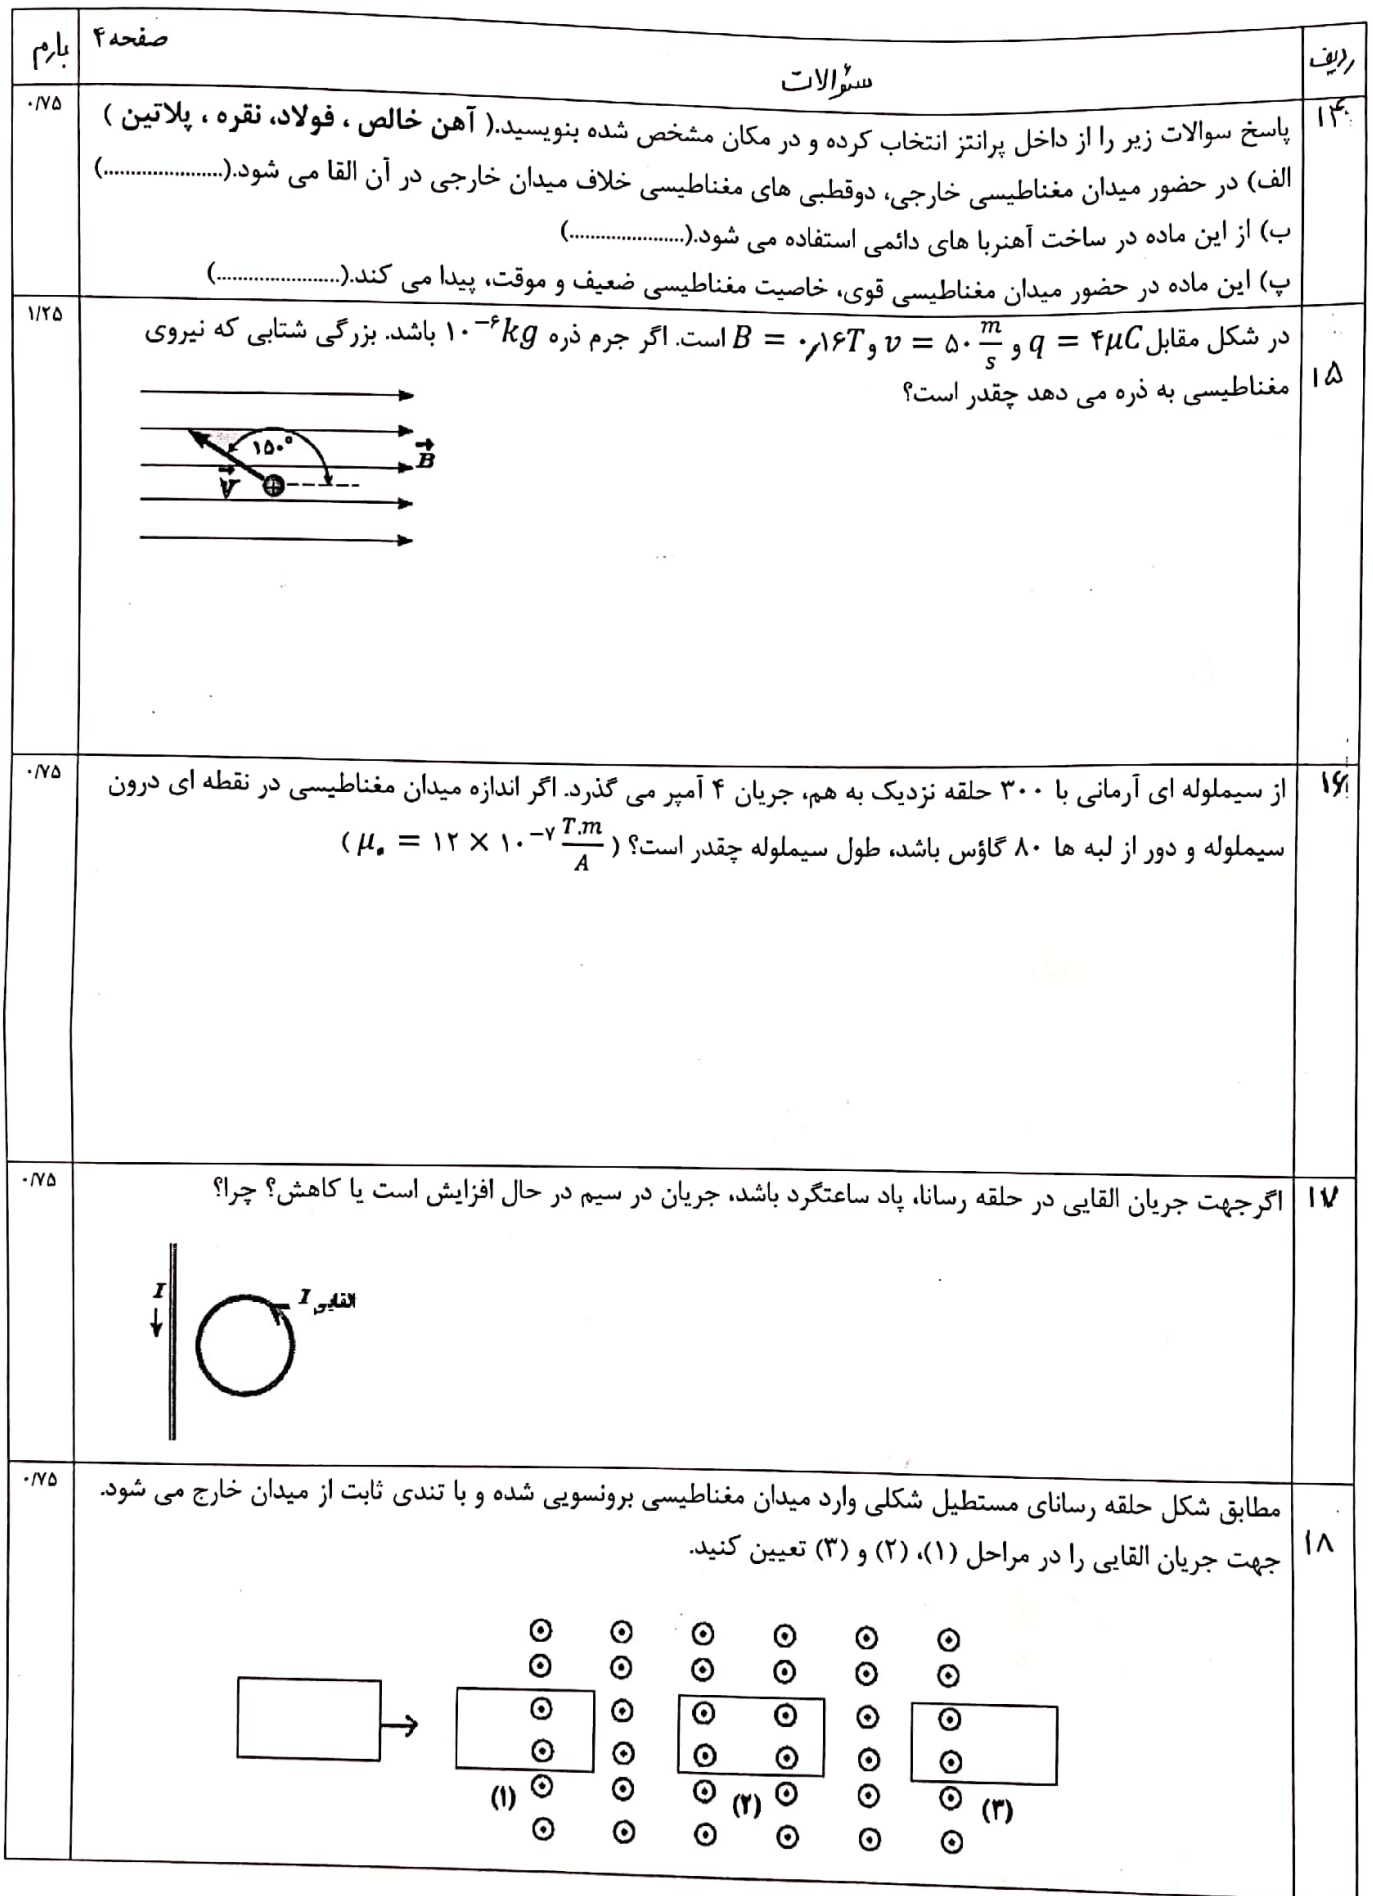 ردیف سئوالات صفحه۴ بارم
۱۴ پاسخ سوالات زیر را از داخل پرانتز انتخاب کرده و در مکان مشخص شده بنویسید.( آهن خالص ، فولاد، نقره ، پلاتین ) ۰/۷۵
الف) در حضور میدان مغناطیسی خارجی، دوقطبی های مغناطیسی خلاف میدان خارجی در آن القا می شود.(......................)
ب) از این ماده در ساخت آهنربا های دائمی استفاده می شود.(......................)
پ) این ماده در حضور میدان مغناطیسی قوی، خاصیت مغناطیسی ضعیف و موقت، پیدا می کند.(......................)
۱۵ در شکل مقابل q = ۴μC و v = ۵۰ m/s و B = ۰٫۱۶T است. اگر جرم ذره ۱۰⁻⁶kg باشد. بزرگی شتابی که نیروی ۱/۲۵
مغناطیسی به ذره می دهد چقدر است؟
۱۵۰°
B
V
۱۶ از سیملوله ای آرمانی با ۳۰۰ حلقه نزدیک به هم، جریان ۴ آمپر می گذرد. اگر اندازه میدان مغناطیسی در نقطه ای درون ۰/۷۵
سیملوله و دور از لبه ها ۸۰ گاؤس باشد، طول سیملوله چقدر است؟ ( μ۰ = ۱۲ × ۱۰⁻⁷ T.m/A )
۱۷ اگرجهت جریان القایی در حلقه رسانا، پاد ساعتگرد باشد، جریان در سیم در حال افزایش است یا کاهش؟ چرا؟ ۰/۷۵
I
I القایی
۱۸ مطابق شکل حلقه رسانای مستطیل شکلی وارد میدان مغناطیسی برونسویی شده و با تندی ثابت از میدان خارج می شود. ۰/۷۵
جهت جریان القایی را در مراحل (۱)، (۲) و (۳) تعیین کنید.
(۱) (۲) (۳)